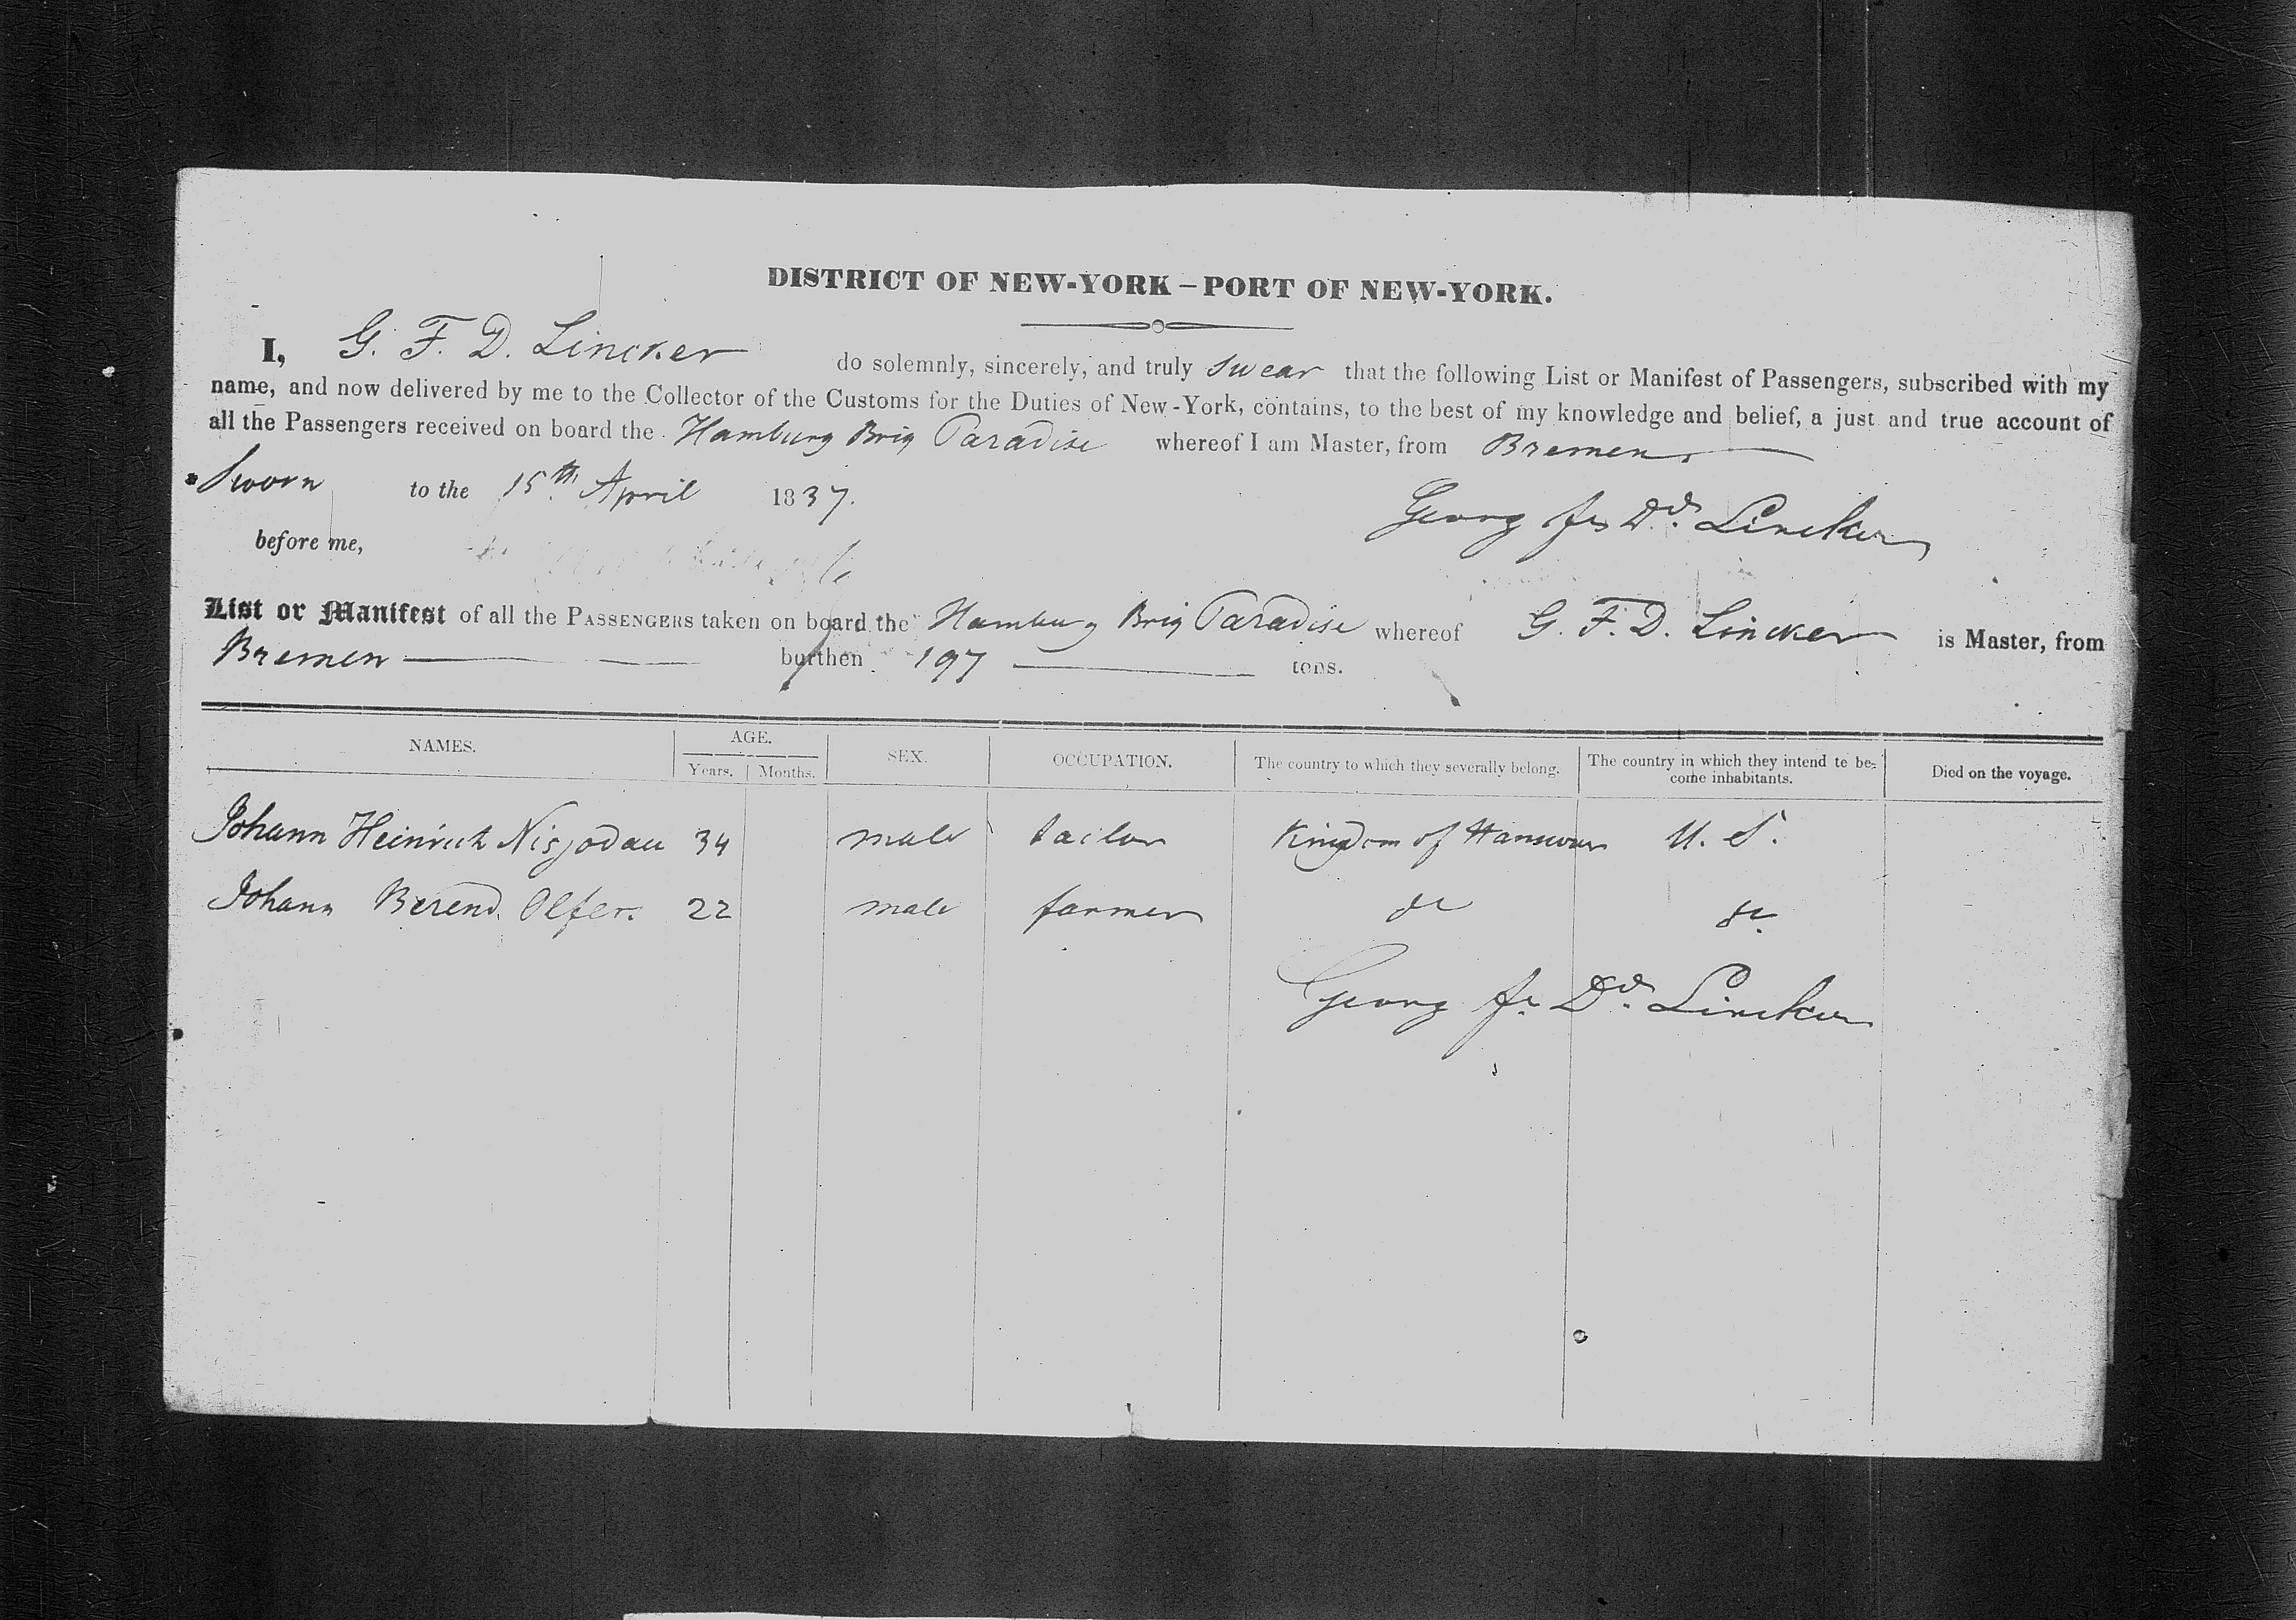 DISTRICT OF NEW-YORK – PORT OF NEW-YORK.
I, G. F. D. Lincker do solemnly, sincerely, and truly swear that the following List or Manifest of Passengers, subscribed with my
name, and now delivered by me to the Collector of the Customs for the Duties of New-York, contains, to the best of my knowledge and belief, a just and true account of
all the Passengers received on board the Hamburg Brig Paradise whereof I am Master, from Bremen
Sworn to the 15th April 1837.
Georg Fr Dd. Lincker
before me,
List or Manifest of all the PASSENGERS taken on board the Hamburg Brig Paradise whereof G. F. D. Lincker is Master, from
Bremen burthen 197 tons.
NAMES. AGE. SEX. OCCUPATION. The country to which they severally belong. The country in which they intend te be-
come inhabitants. Died on the voyage.
Years. Months.
Johann Heinrich Nisjodau 34 male tailor Kingdom of Hannover U. S.
Johann Berend Olfer. 22 male farmer do do
Georg Fr. Dd. Lincker